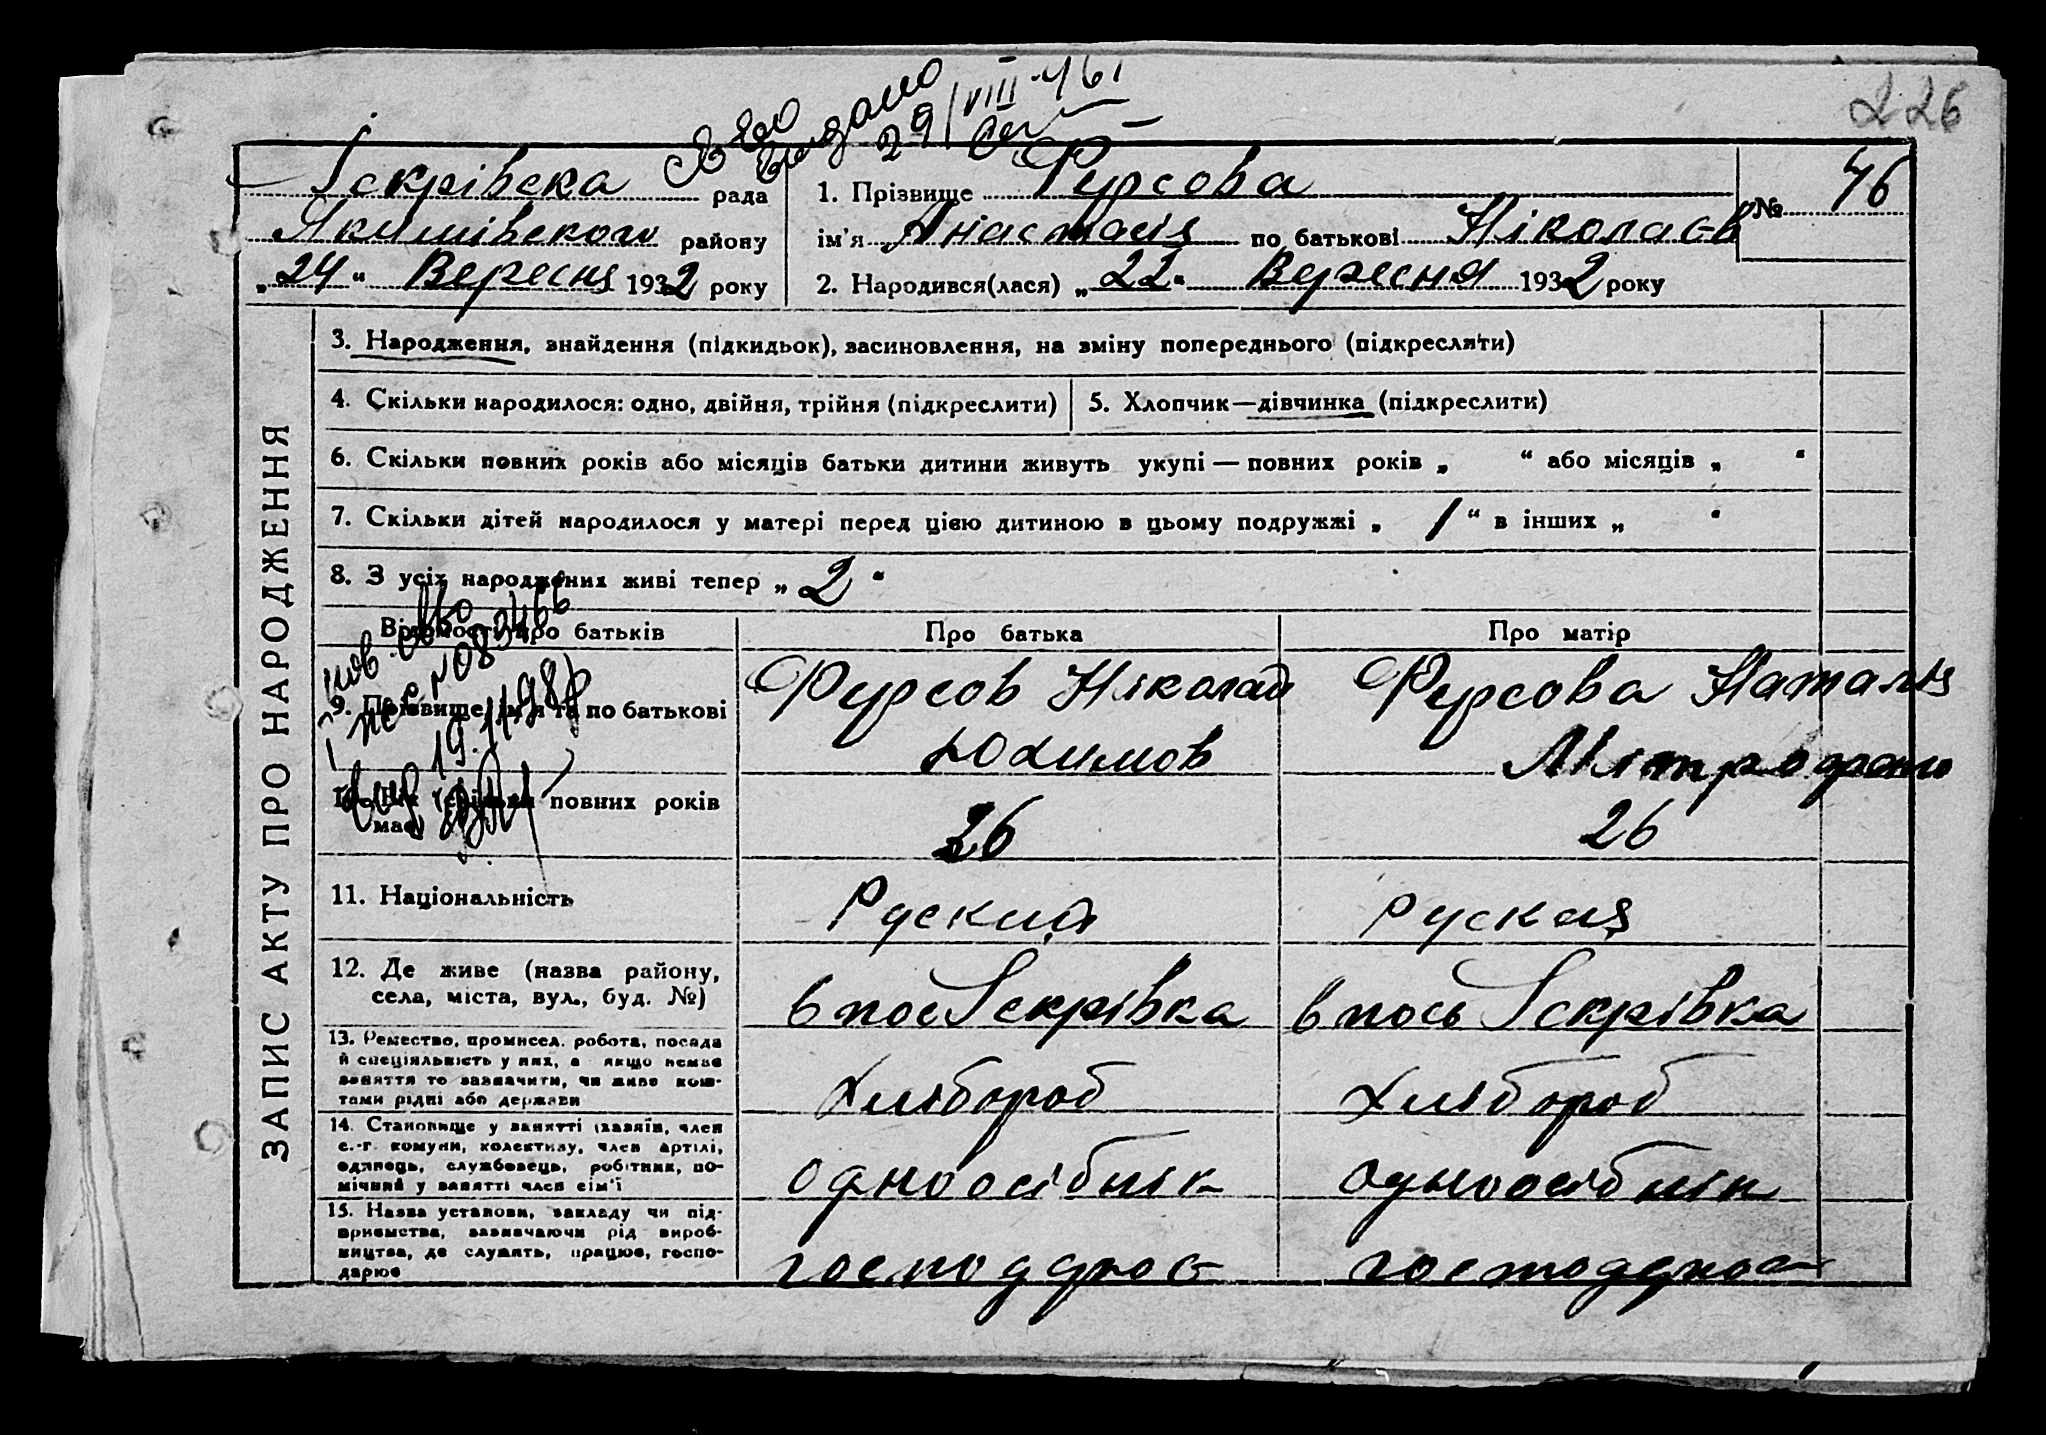 226
Св во
видано
29/VIII-46 г
Іскрівська рада
Якимівського району
„24“ Вересня 1932 року
1. Прізвище Фурсова
ім'я Анастасія по батькові Ніколаєв
№ 46
2. Народився(лася) „22“ Вересня 1932 року
ЗАПИС АКТУ ПРО НАРОДЖЕННЯ
3. Народження, знайдення (підкидьок), засиновлення, на зміну попереднього (підкреслити)
4. Скільки народилося: одно, двійня, трійня (підкреслити)
5. Хлопчик—дівчинка (підкреслити)
6. Скільки повних років або місяців батьки дитини живуть укупі — повних років „ “ або місяців „ “
7. Скільки дітей народилося у матері перед цією дитиною в цьому подружжі „ 1 “ в інших „ “
8. З усіх народжених живі тепер „ 2 “
Відомості про батьків
Про батька
Про матір
пов. св во
№ 083466
19.11.98р
9. Прізвище, ім'я та по батькові
Фурсов Ніколай
Юхимов
Фурсова Наталія
Мітрофано
10. Скільки повних років
має
26
26
11. Національність
Руский
руская
12. Де живе (назва району,
села, міста, вул., буд. №)
в пос Іскрівка
в пось Іскрівка
13. Ремество, промисел, робота, посада
й спеціяльність у них, а якщо немає
заняття то зазначити, чи живе кош-
тами рідні або держави
Хлібороб
Хлібороб
14. Становище у занятті (хазяїн, член
с.-г. комуни, колективу, член артілі,
одинець, службовець, робітник, по-
мічний у занятті член сім'ї
одноосібнік
одноосібнік
15. Назва установи, закладу чи під-
приємства, зазначаючи рід вироб-
ництва, де служить, працює, госпо-
дарює